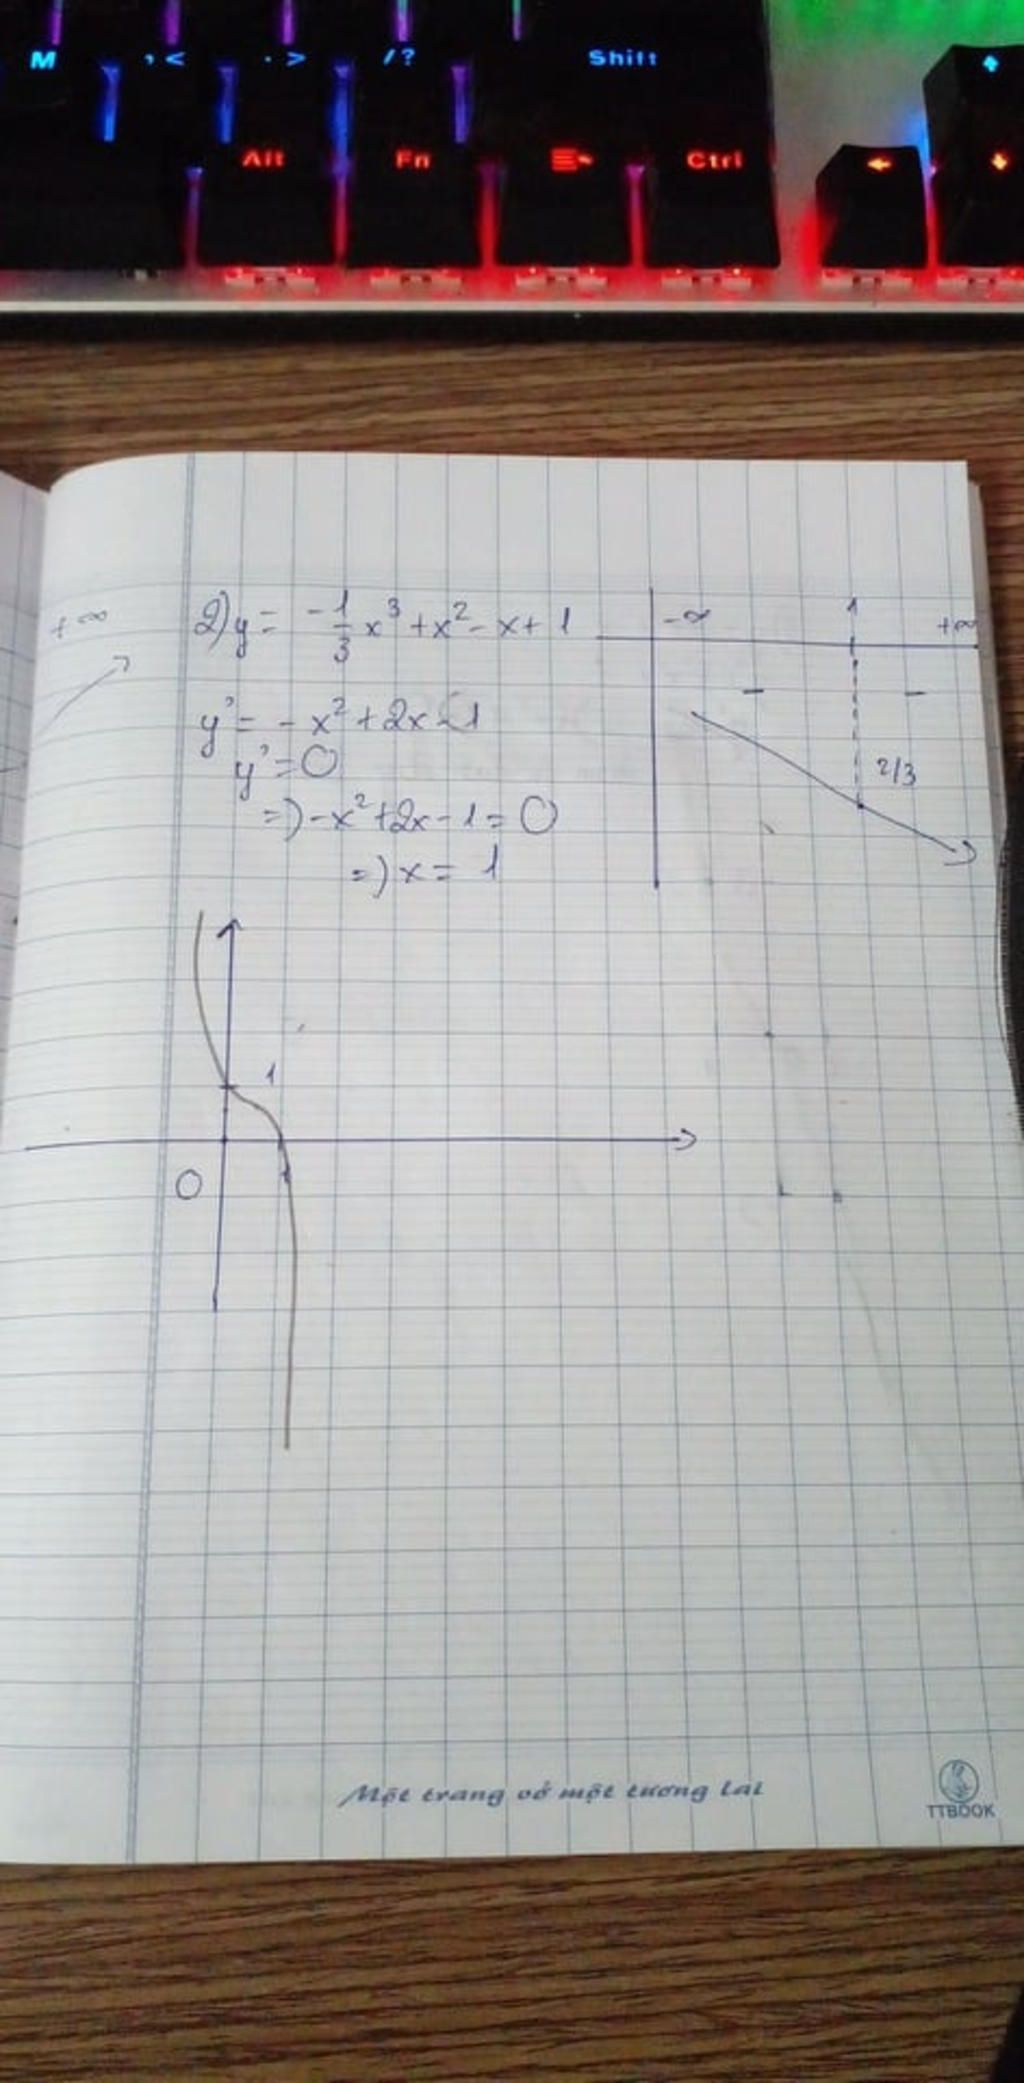 M , < . > / ? Shift
Alt Fn Ctrl
+∞
2) y = -1/3 x³ + x² - x + 1
-∞ 1 +∞
y' = - x² + 2x - 1
- -
y' = 0
2/3
=) -x² + 2x - 1 = 0
=) x = 1
1
O 1
Một trang vở một tương lai
TTBOOK